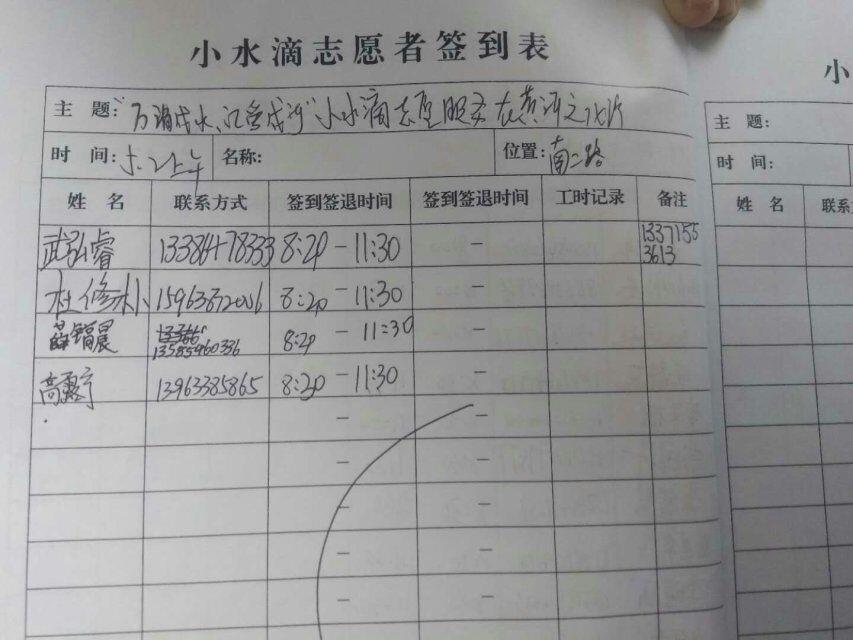 小水滴志愿者签到表
主 题:"万滴成水、汇禽成河"小水滴志愿服务在黄河文化
时 间: 5.2上午 名称: 位置: 南二路
姓 名 联系方式 签到签退时间 签到签退时间 工时记录 备注
武弘睿 8:20 - 11:30 - 1337155
3613
杜修 15963872006 8:20 - 11:30 -
晨 13585960336 8:20 - 11:30 -
高 13963385865 8:20 - 11:30 -
- -
- -
- -
- -
- -
小
主 题:
时 间:
姓 名 联系